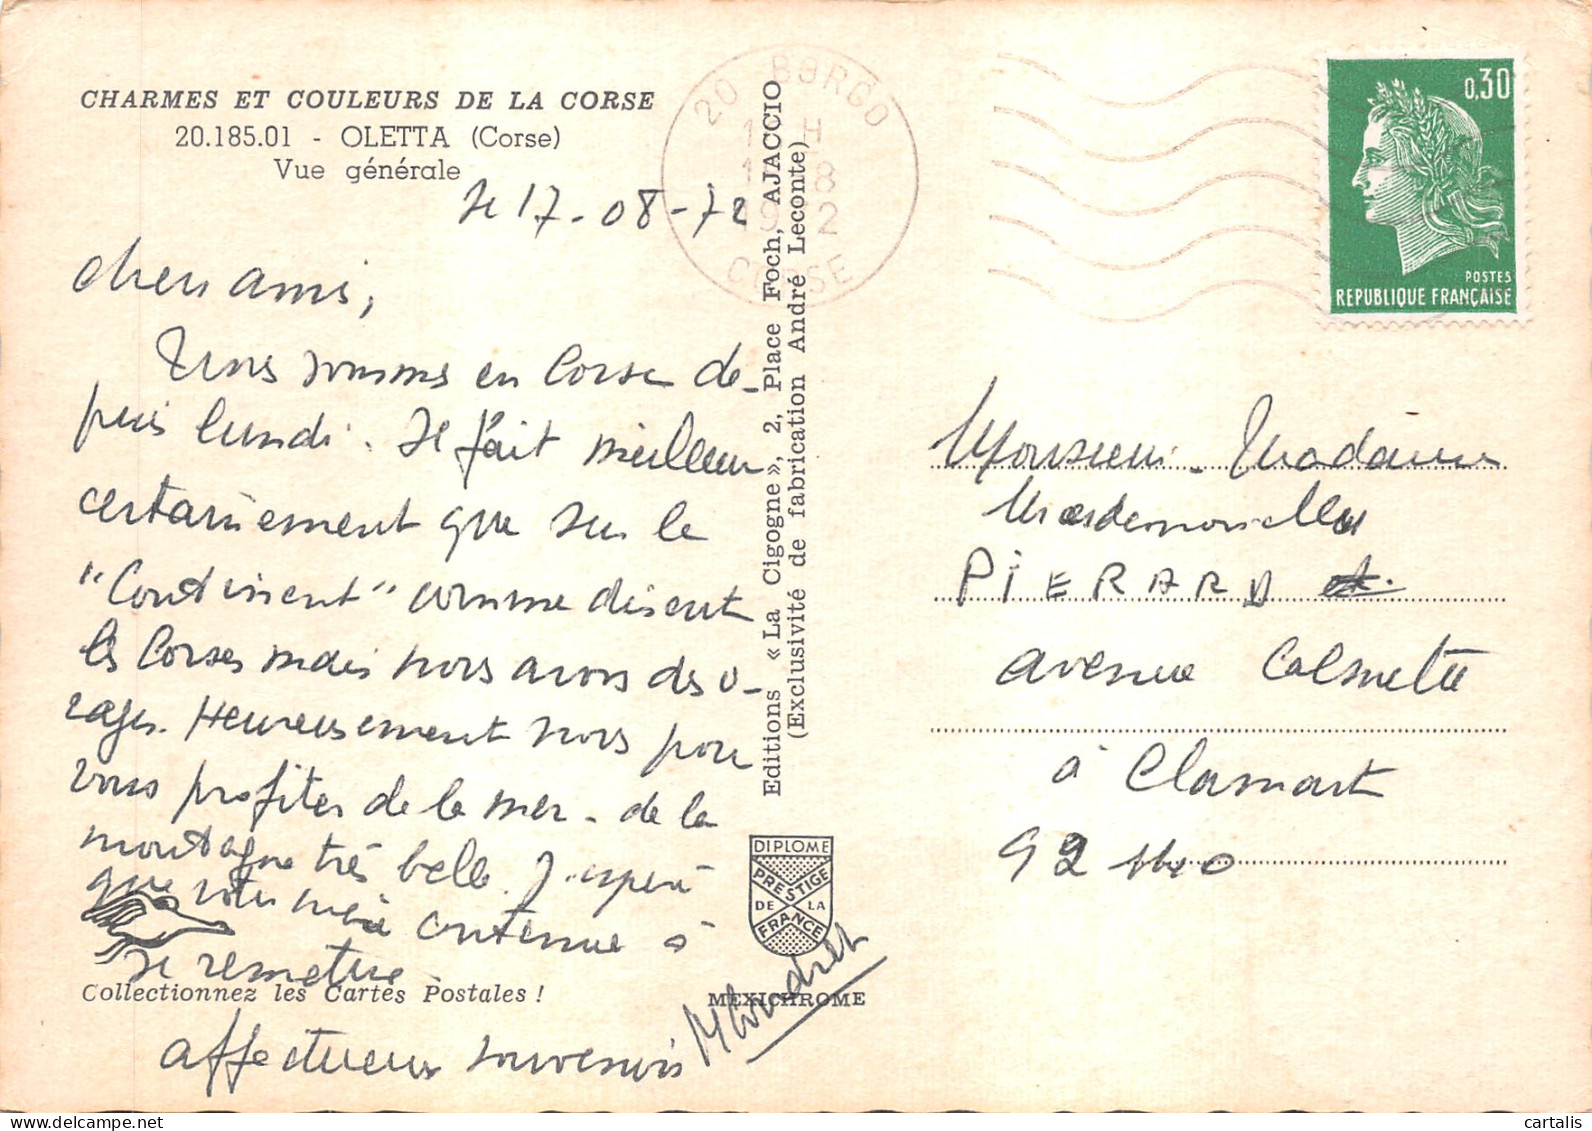 CHARMES ET COULEURS DE LA CORSE
20.185.01 - OLETTA (Corse)
Vue générale
le 17-08-72
chers amis,
Nous sommes en Corse de-
puis lundi. Il fait meilleur
certainement que sur le
"Continent" comme disent
les Corses mais nous avons des o-
rages. Heureusement nous pou
vous profiter de la mer - de la
montagne très belle. J'espère
que votre contenue à
se remettre
Collectionnez les Cartes Postales !
affectueux souvenirs
20 BORGO
CORSE
Editions « La Cigogne », 2, Place Foch, AJACCIO
(Exclusivité de fabrication André Leconte)
DIPLOME
PRESTIGE
DE LA
FRANCE
MEXICHROME
0,30
POSTES
REPUBLIQUE FRANÇAISE
Monsieur - Madame
Mesdemoiselles
PIERARD
avenue Calmette
à Clamart
92 140
delcampe.net
cartalis